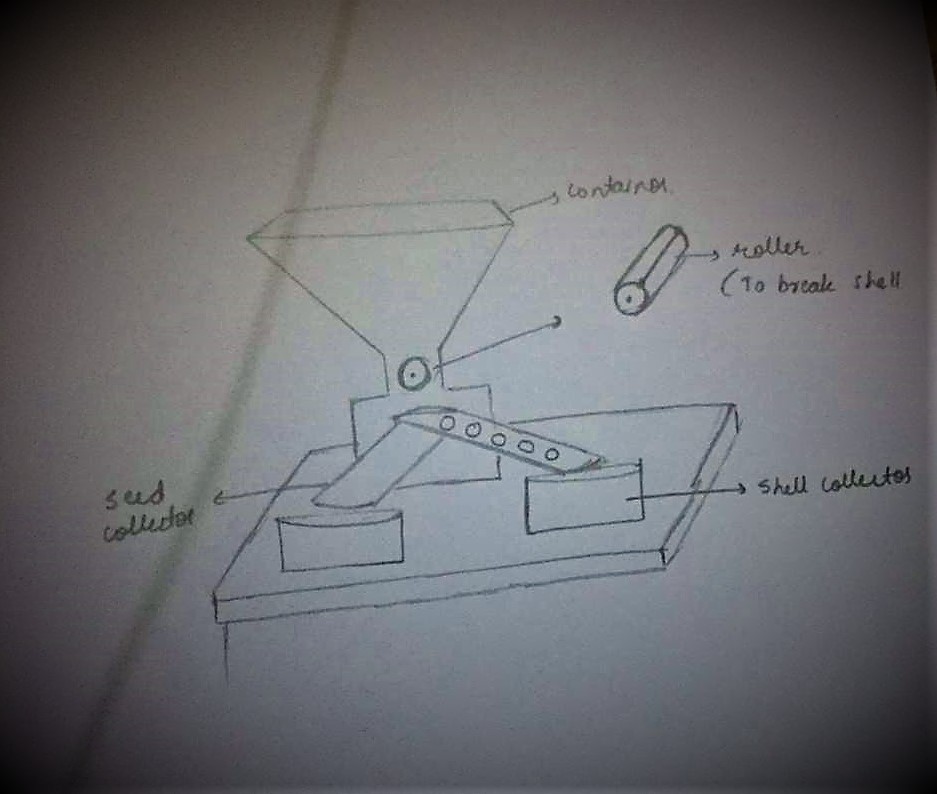 container.
roller.
(To break shell
seed
collector
shell collector